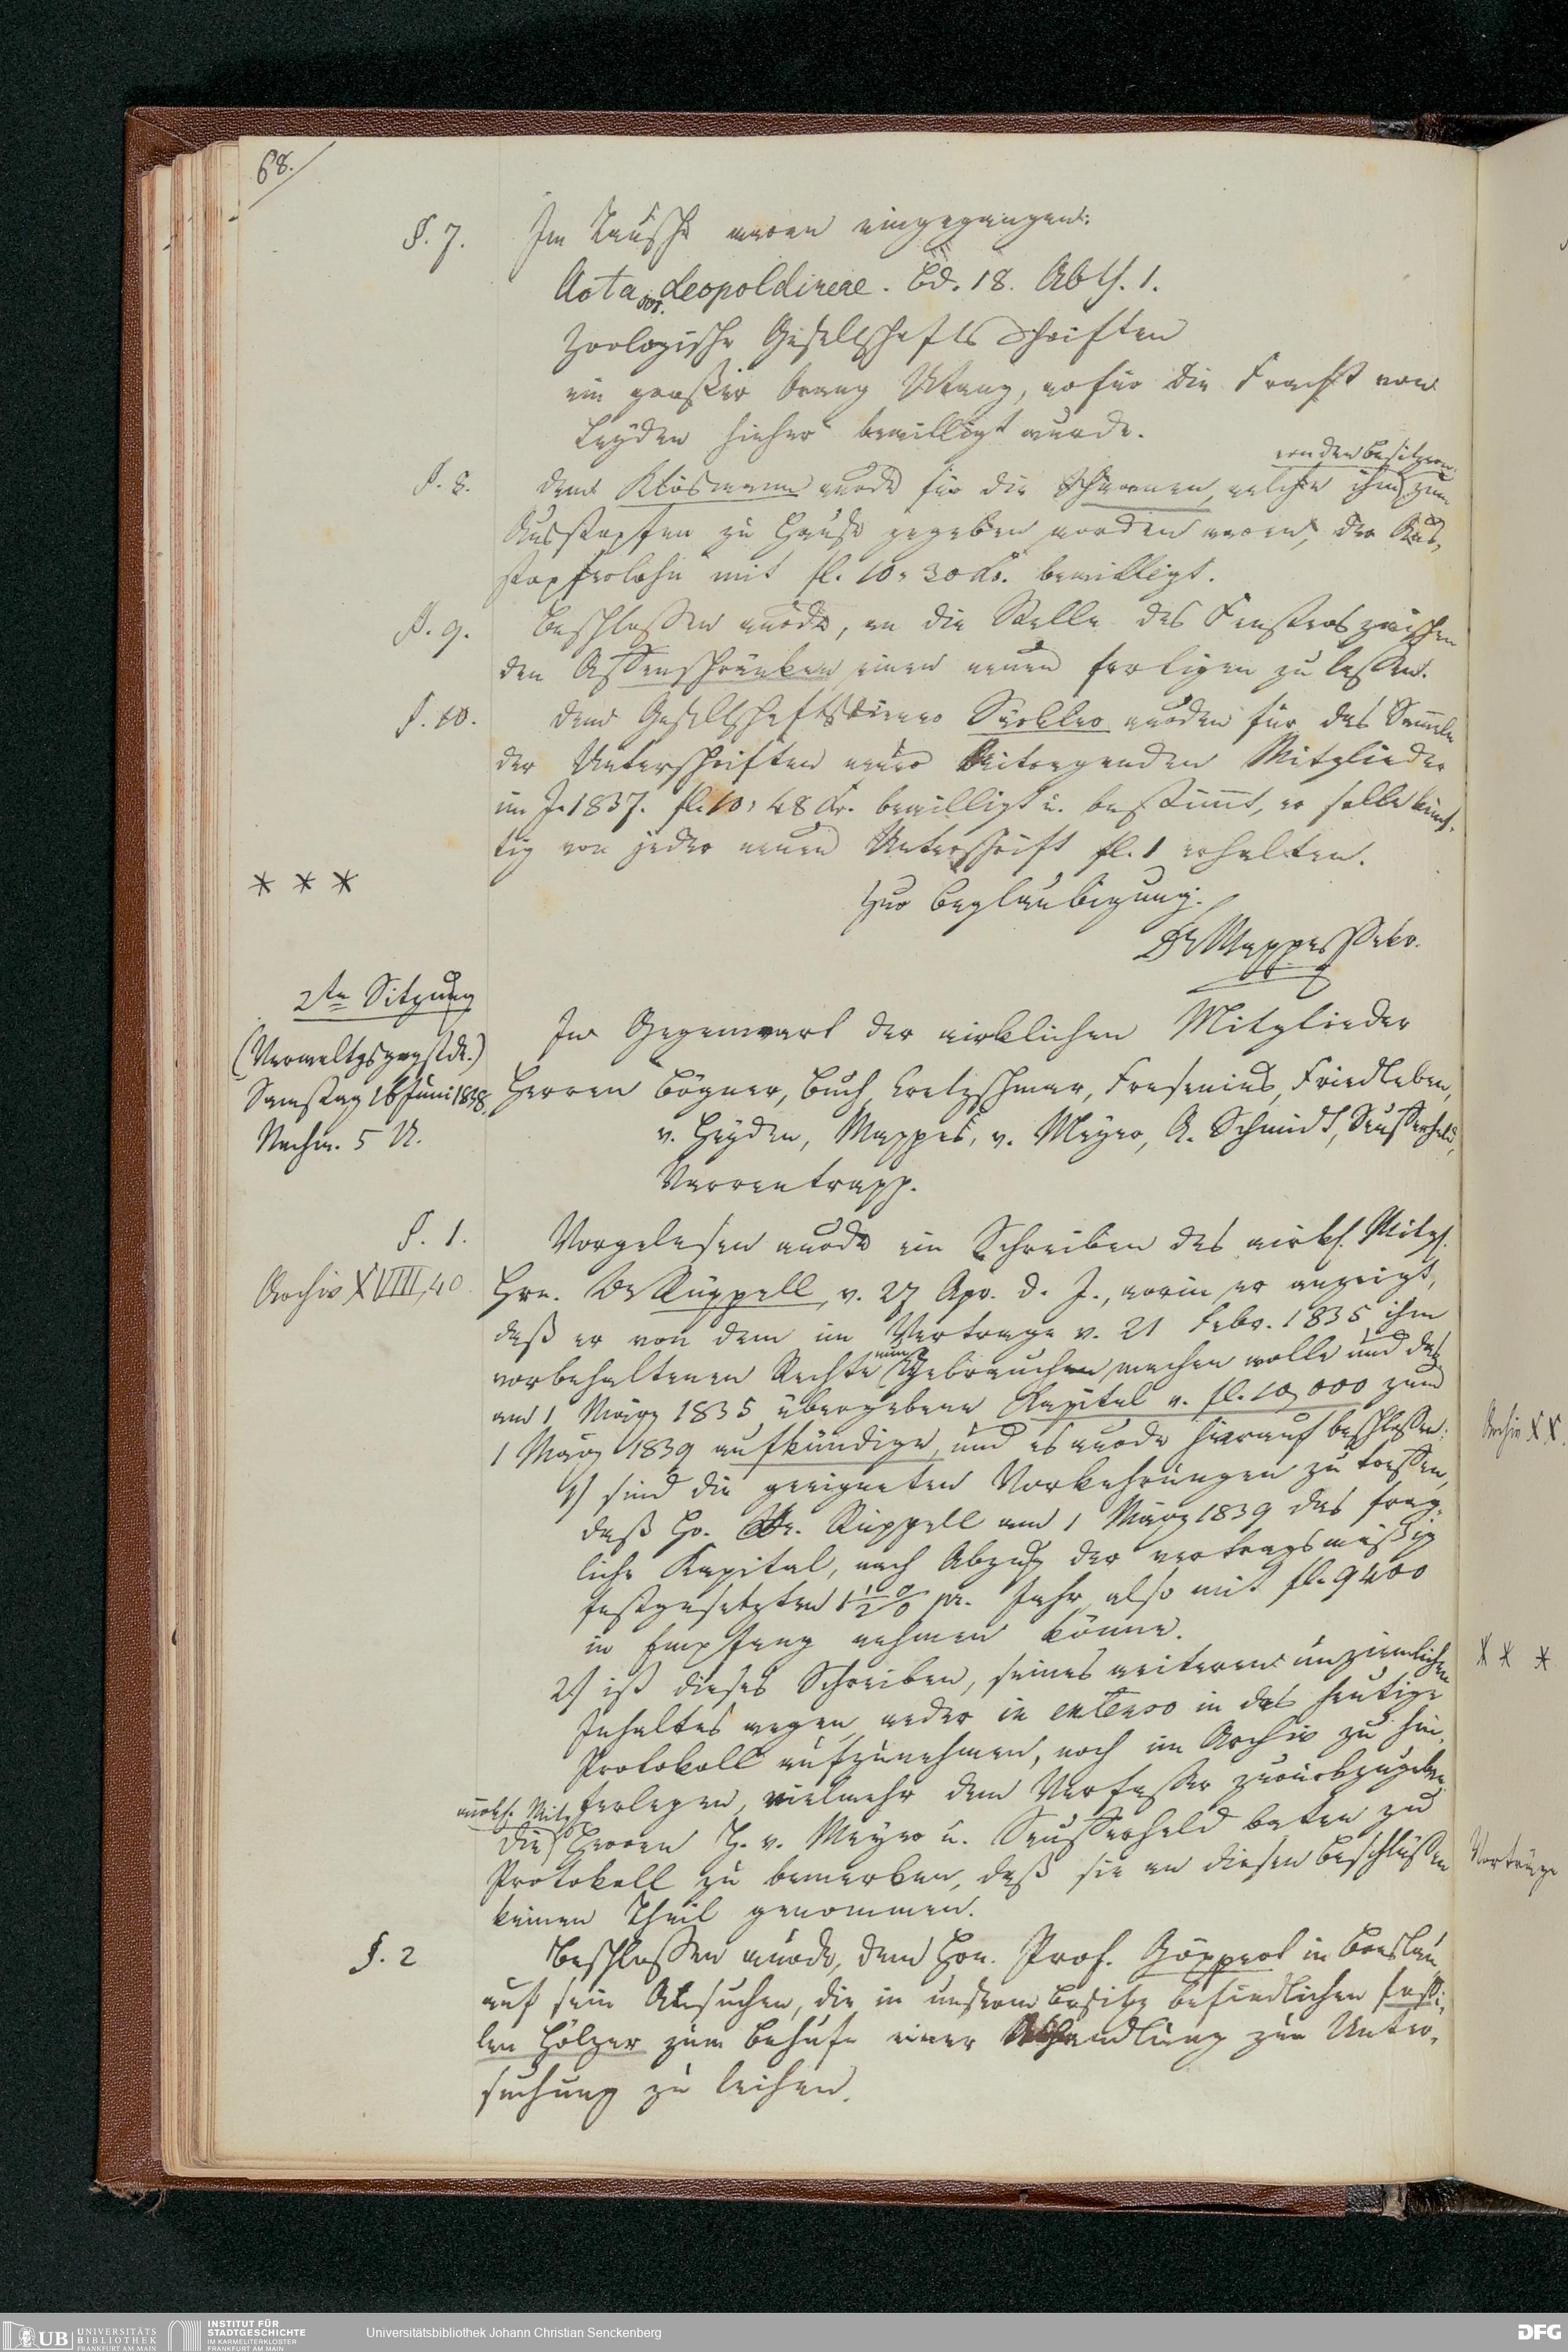 68.
§. 7. Im Tausche waren eingegangen:
Acta soc. Leopoldineae. Bd. 18. Abth. 1.
Zoologische Gesellschafts Schriften
ein großer Orang Utang, wofür die Fracht von
Leyden hieher bewilligt wurde.
von den Besitzern
§. 8. Dem Klösmann wurde für die Schwanen, welche ihm zum
Ausstopfen zu Hause gegeben worden waren, der Aus-
stopferlohn mit fl. 10, 30 Kr. bewilligt.
§. 9. Beschlossen wurde, an die Stelle des Fensters zwischen
den Affenschränken einen neuen fertigen zu lassen.
§. 10. Dem Gesellschaftsdiener wurden für das Sammeln
der Unterschriften neuer beitragenden Mitglieder
im J. 1837. fl. 10, 48 Kr. bewilligt u. bestimmt, er solle künf-
tig von jeder neuen Unterschrift fl. 1 erhalten.
* * *
Zur Beglaubigung.
Dr Mappes Sekr.
2te Sitzung
(Verwaltgsgegstde.)
Samstag 16 Juni 1838.
Nachm. 5 U.
In Gegenwart der wirklichen Mitglieder
Herren Bögner, Buch, Cretzschmar, Fresenius, Friedleben,
v. Heyden, Mappes, v. Meyer, A. Schmidt, Seufferheld,
Varrentrapp.
§. 1. Vorgelesen wurde ein Schreiben des wirkl. Mitgl.
Archiv XVIIII, 40
Hrn. Dr Rüppell, v. 27 Apr. d. J., worin er anzeigt,
daß er von dem im Vertrage v. 21 Febr. 1835 ihm
vorbehaltenen Rechte nun Gebrauch machen wolle und das
am 1 März 1835 übergebene Kapital v. fl. 10,000 zum
1 März 1839 aufkündige, und es wurde hierauf beschlossen:
Archiv XX.
1) sind die geeigneten Vorkehrungen zu treffen,
daß Hr. Dr. Rüppell am 1 März 1839 das frag-
liche Kapital, nach Abzug der vertragsmäßig
festgesetzten 1½ % pr. Jahr, also mit fl. 9400
in Empfang nehmen könne.
2) ist dieses Schreiben, seines weiteren unziemlichen
* * *
Inhaltes wegen weder in extenso in das heutige
Protokoll aufzunehmen, noch im Archiv zu hin-
terlegen, vielmehr dem Verfasser zurückzugeben.
wirkl. Mitgl.
Die Herren H. v. Meyer u. Seufferheld baten zu
Protokoll zu bemerken, daß sie an diesen Beschlüssen
Vorträge
keinen Theil genommen.
§. 2 Beschlossen wurde, dem Hrn. Prof. Göppert in Breslau,
auf sein Ansuchen, die in unserm Besitze befindlichen fossi-
len Hölzer zum Behufe einer Abhandlung zur Unter-
suchung zu leihen.
UB UNIVERSITÄTS BIBLIOTHEK FRANKFURT AM MAIN
INSTITUT FÜR STADTGESCHICHTE IM KARMELITERKLOSTER FRANKFURT AM MAIN
Universitätsbibliothek Johann Christian Senckenberg
DFG